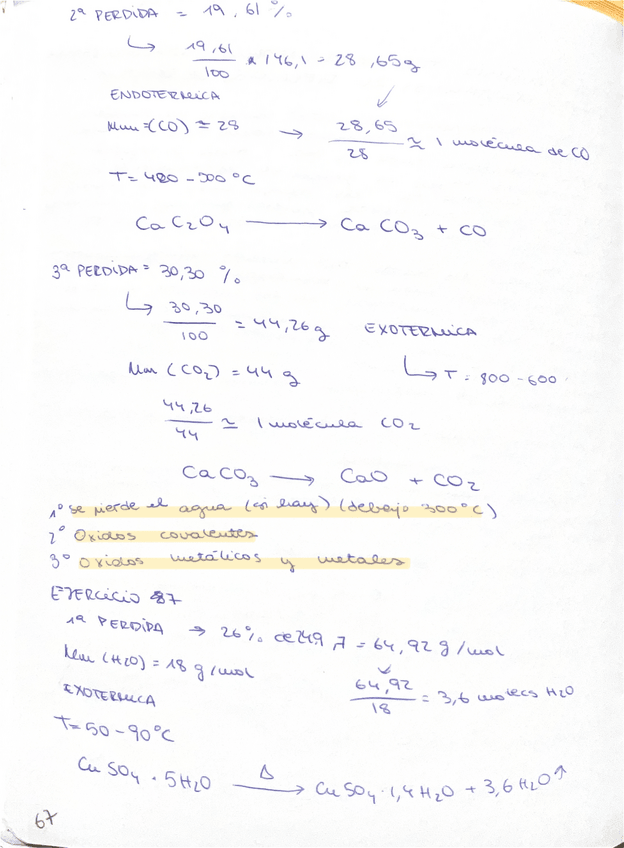 2ª PERDIDA = 19,61 %
19,61 / 100 x 146,1 = 28,65g
ENDOTERMICA
Mm =(CO) ≃ 28 → 28,65 / 28 ≃ 1 molécula de CO
T= 420 - 500ºC
CaC2O4 → CaCO3 + CO
3ª PERDIDA = 30,30 %
30,30 / 100 = 44,26g EXOTERMICA
Mm (CO2) = 44 g T = 800 - 600
44,26 / 44 ≃ 1 molécula CO2
CaCO3 → CaO + CO2
1º se pierde el agua (si hay) (debajo 300ºC)
2º Oxidos covalentes
3º Oxidos metálicos y metales
EJERCICIO 87
1ª PERDIDA → 26% de 249,7 = 64,92 g/mol
Mm (H2O) = 18 g/mol 64,92 / 18 = 3,6 molecs H2O
EXOTERMICA
T= 50 - 90ºC
CuSO4 · 5H2O Δ → CuSO4 · 1,4H2O + 3,6H2O↑
67